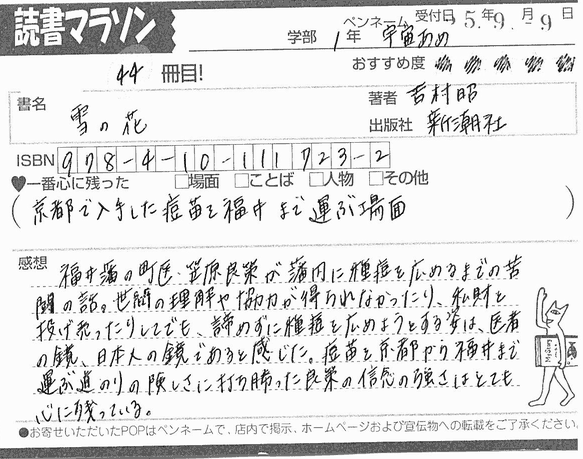 読書マラソン
学部 1年 ペンネーム 宇宙あめ 受付日 '5.年9.月-9日
44 冊目!
おすすめ度
書名 雪の花
著者 吉村昭
出版社 新潮社
ISBN 978-4-10-111723-2
♥一番心に残った □場面 □ことば □人物 □その他
(京都で入手した痘苗を福井まで運ぶ場面)
感想 福井藩の町医・笠原良策が藩内に種痘を広めるまでの苦
闘の話。世間の理解や協力が得られなかったり、私財を
投げ売ったりしてでも、諦めずに種痘を広めようとする姿は、医者
の鏡、日本人の鏡であると感じた。痘苗を京都から福井まで
運ぶ道のりの険しさに打ち勝った良策の信念の強さはとても
心に残っている。
●お寄せいただいたPOPはペンネームで、店内で掲示、ホームページおよび宣伝物への転載をご了承ください。